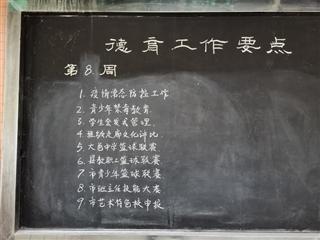 德育工作要点
第8周
1. 疫情常态防控工作
2. 青少年禁毒教育
3. 学生会发式管理
4. 班级走廊文化评比
5. 大邑中学篮球联赛
6. 县教职工篮球联赛
7. 市青少年篮球联赛
8. 市班主任技能大赛
9. 市艺术特色校申报